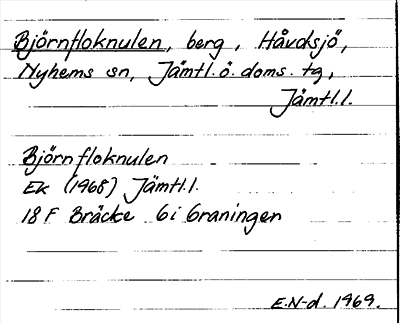 Björnfloknulen, berg, Håvdsjö,
Nyhems sn, Jämtl.ö. doms. tg,
Jämtl.l.
Björnfloknulen
Ek (1968) Jämtl.l.
18 F Bräcke 6i Graningen
E.N-d. 1969.